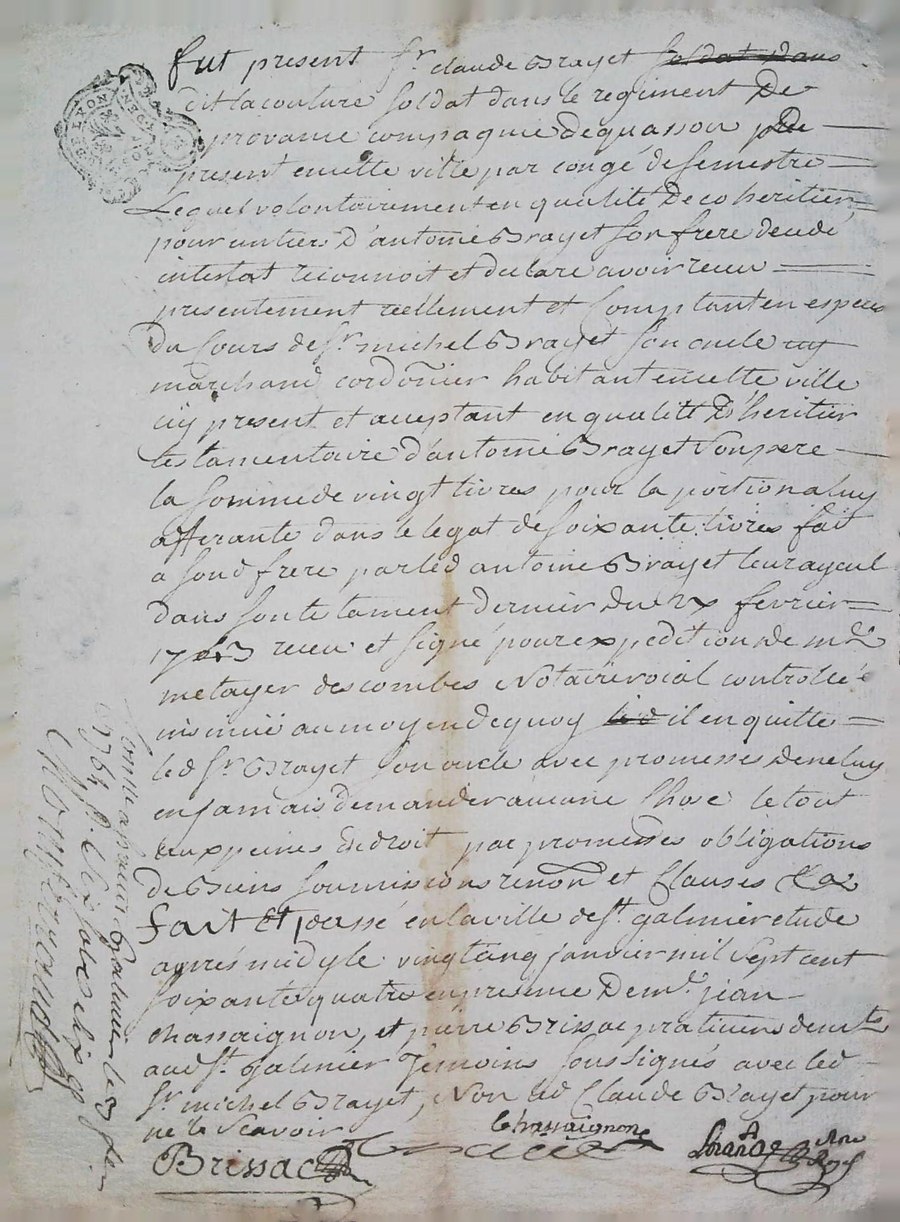 fut present Sr claude Brayet soldat dans
dit la couture soldat dans le regiment De
provance compagnie de quasson
present en cette ville par congé de semestre
Lequel volontairement en qualité De coheritier
pour un tiers D'antoine Brayet son frere decedé
intestat reconnoit et declare avoir receu
presentement reellement et comptant en especes
du cours de Sr michel Brayet son oncle
marchand cordonier habitant en cette ville
icy present et acceptant en qualité D'heritier
testamentaire d'antoine Brayet son pere
la somme de vingt livres pour la portion a luy
afferante dans le legat de soixante livres fait
a sond frere par led antoine Brayet leur ayeul
dans son testament dernier du fevrier
receu et signé pour expedition de me
metayer descombes Notaire roial controllé
insinué au moyen de quoy il en quitte
led Sr Brayet son oncle avec promesses de ne luy
en jamais demander aucune chose le tout
aux peines de droit par promesses obligations
de Biens soumissions renon et Clauses &a
Fait Et passé en la ville de St galmier etude
apres midy le vingt cinq janvier mil sept cent
soixante quatre en presence De me jean
chassaignon, et pierre Brissac praticiens demts
aud St galmier Temoins soussignés avec led
Sr michel Brayet, Non led Claude Brayet pour
ne le scavoir
lechassaignon
Brissac
LYON